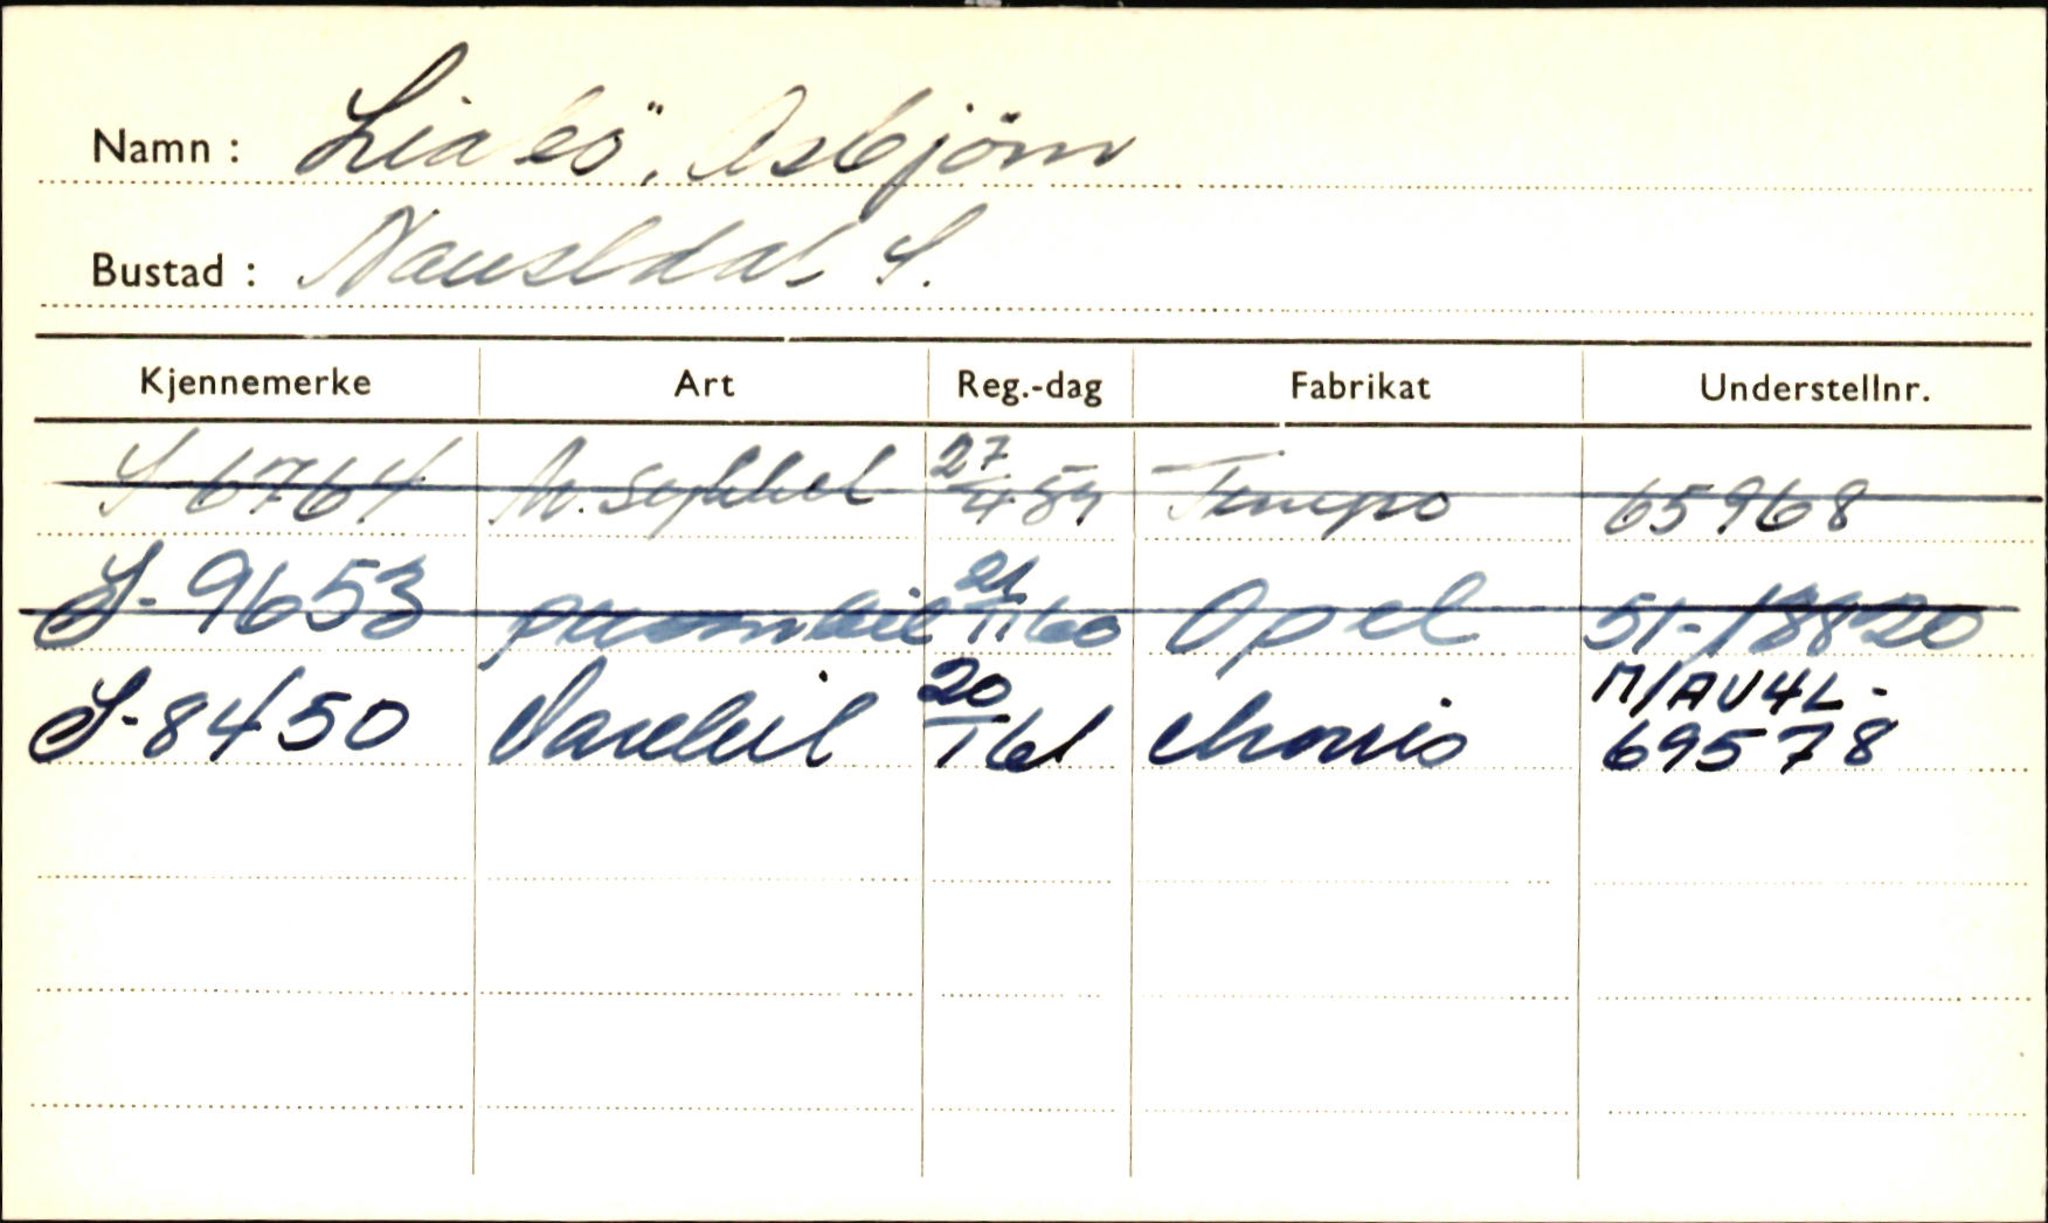 Namn : Liabö, Asbjörn
Bustad : Naustdal S.
Kjennemerke Art Reg.-dag Fabrikat Understellnr.
S 6764 M. sykkel 27/4 59 Tempo 65968
S-9653 personbil 21/11 60 Opel 51-18820
S-8450 Varebil 20/1 61 Morris M/AV4L-
69578